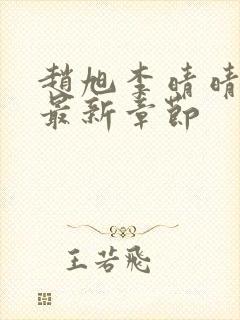 趙旭李晴晴
最新章節
王若飛